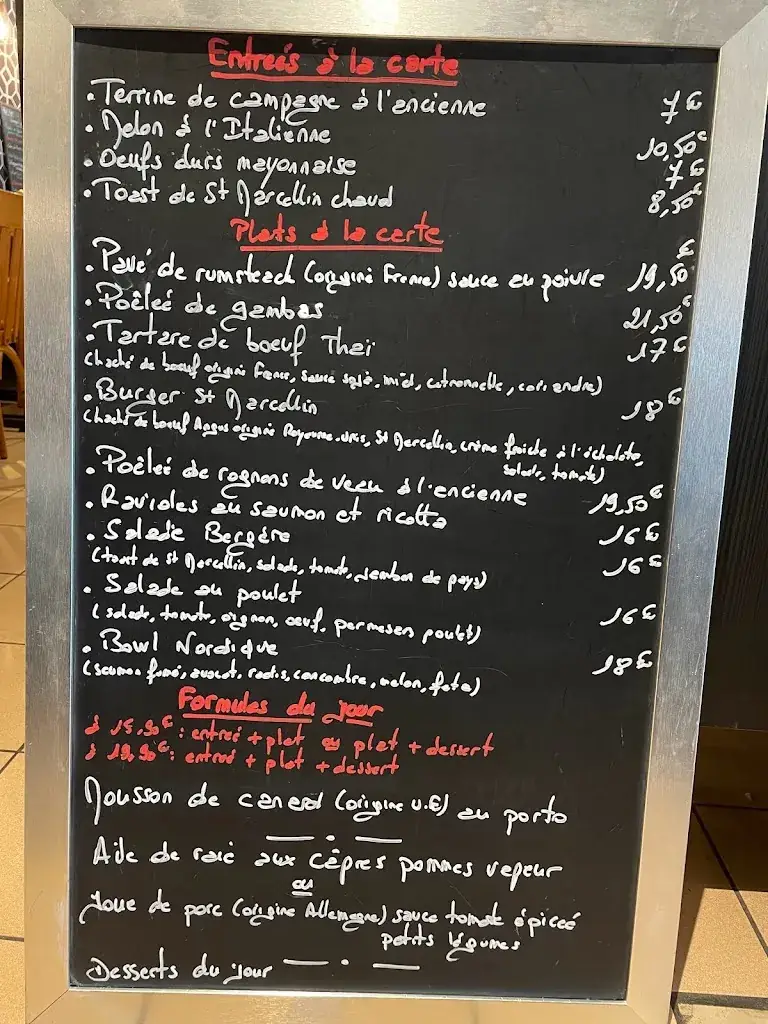 Entrées à la carte
. Terrine de campagne à l'ancienne 7€
. Melon à l'Italienne 10,50€
. Oeufs durs mayonnaise 7€
. Toast de St Marcellin chaud 8,50€
Plats à la carte
. Pavé de rumsteack (origine France) sauce au poivre 19,50€
. Poêleé de gambas 21,50€
. Tartare de boeuf Thaï 17€
(haché de boeuf origine France, sauce soja, miel, citronnelle, coriandre)
. Burger St Marcellin 18€
(haché de boeuf Angus origine Royaume-unis, St Marcellin, crème fraîche à l'échalote,
salade, tomate)
. Poêleé de rognons de veau à l'ancienne 19,50€
. Ravioles au saumon et ricotta 16€
. Salade Bergère 16€
(toast de St Marcellin, salade, tomate, jambon de pays)
. Salade au poulet 16€
(salade, tomate, oignon, oeuf, parmesan poulet)
. Bowl Nordique 18€
(saumon fumé, avocat, radis, concombre, melon, feta)
Formules du jour
à 15,90€ : entreé + plat ou plat + dessert
à 19,90€ : entreé + plat + dessert
Mousson de canard (origine U.E) au porto
Aile de raie aux câpres pommes vapeur
ou
Joue de porc (origine Allemagne) sauce tomate épiceé
petits légumes
Desserts du jour